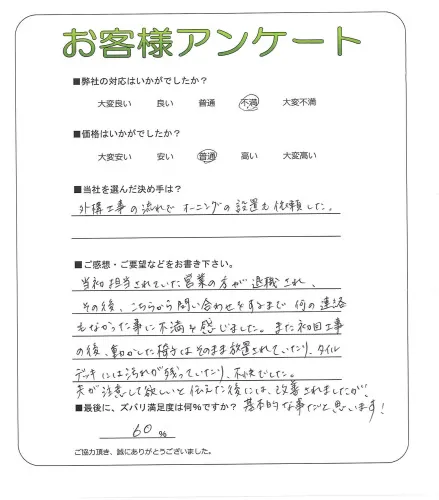 お客様アンケート
■弊社の対応はいかがでしたか?
大変良い 良い 普通 不満 大変不満
■価格はいかがでしたか?
大変安い 安い 普通 高い 大変高い
■当社を選んだ決め手は?
外構工事の流れで オーニングの設置も依頼した。
■ご感想・ご要望などをお書き下さい。
当初担当されていた営業の方が退職され、
その後、こちらから問い合わせをするまで何の連絡
もなかった事に不満を感じました。また初回工事
の後、動かした椅子はそのまま放置されていたり、タイル
デッキには汚れが残っていたり、不快でした。
夫が注意して欲しいと伝えた後には、改善されましたが、
■最後に、ズバリ満足度は何%ですか? 基本的な事だと思います!
60 %
ご協力頂き、誠にありがとうございました。